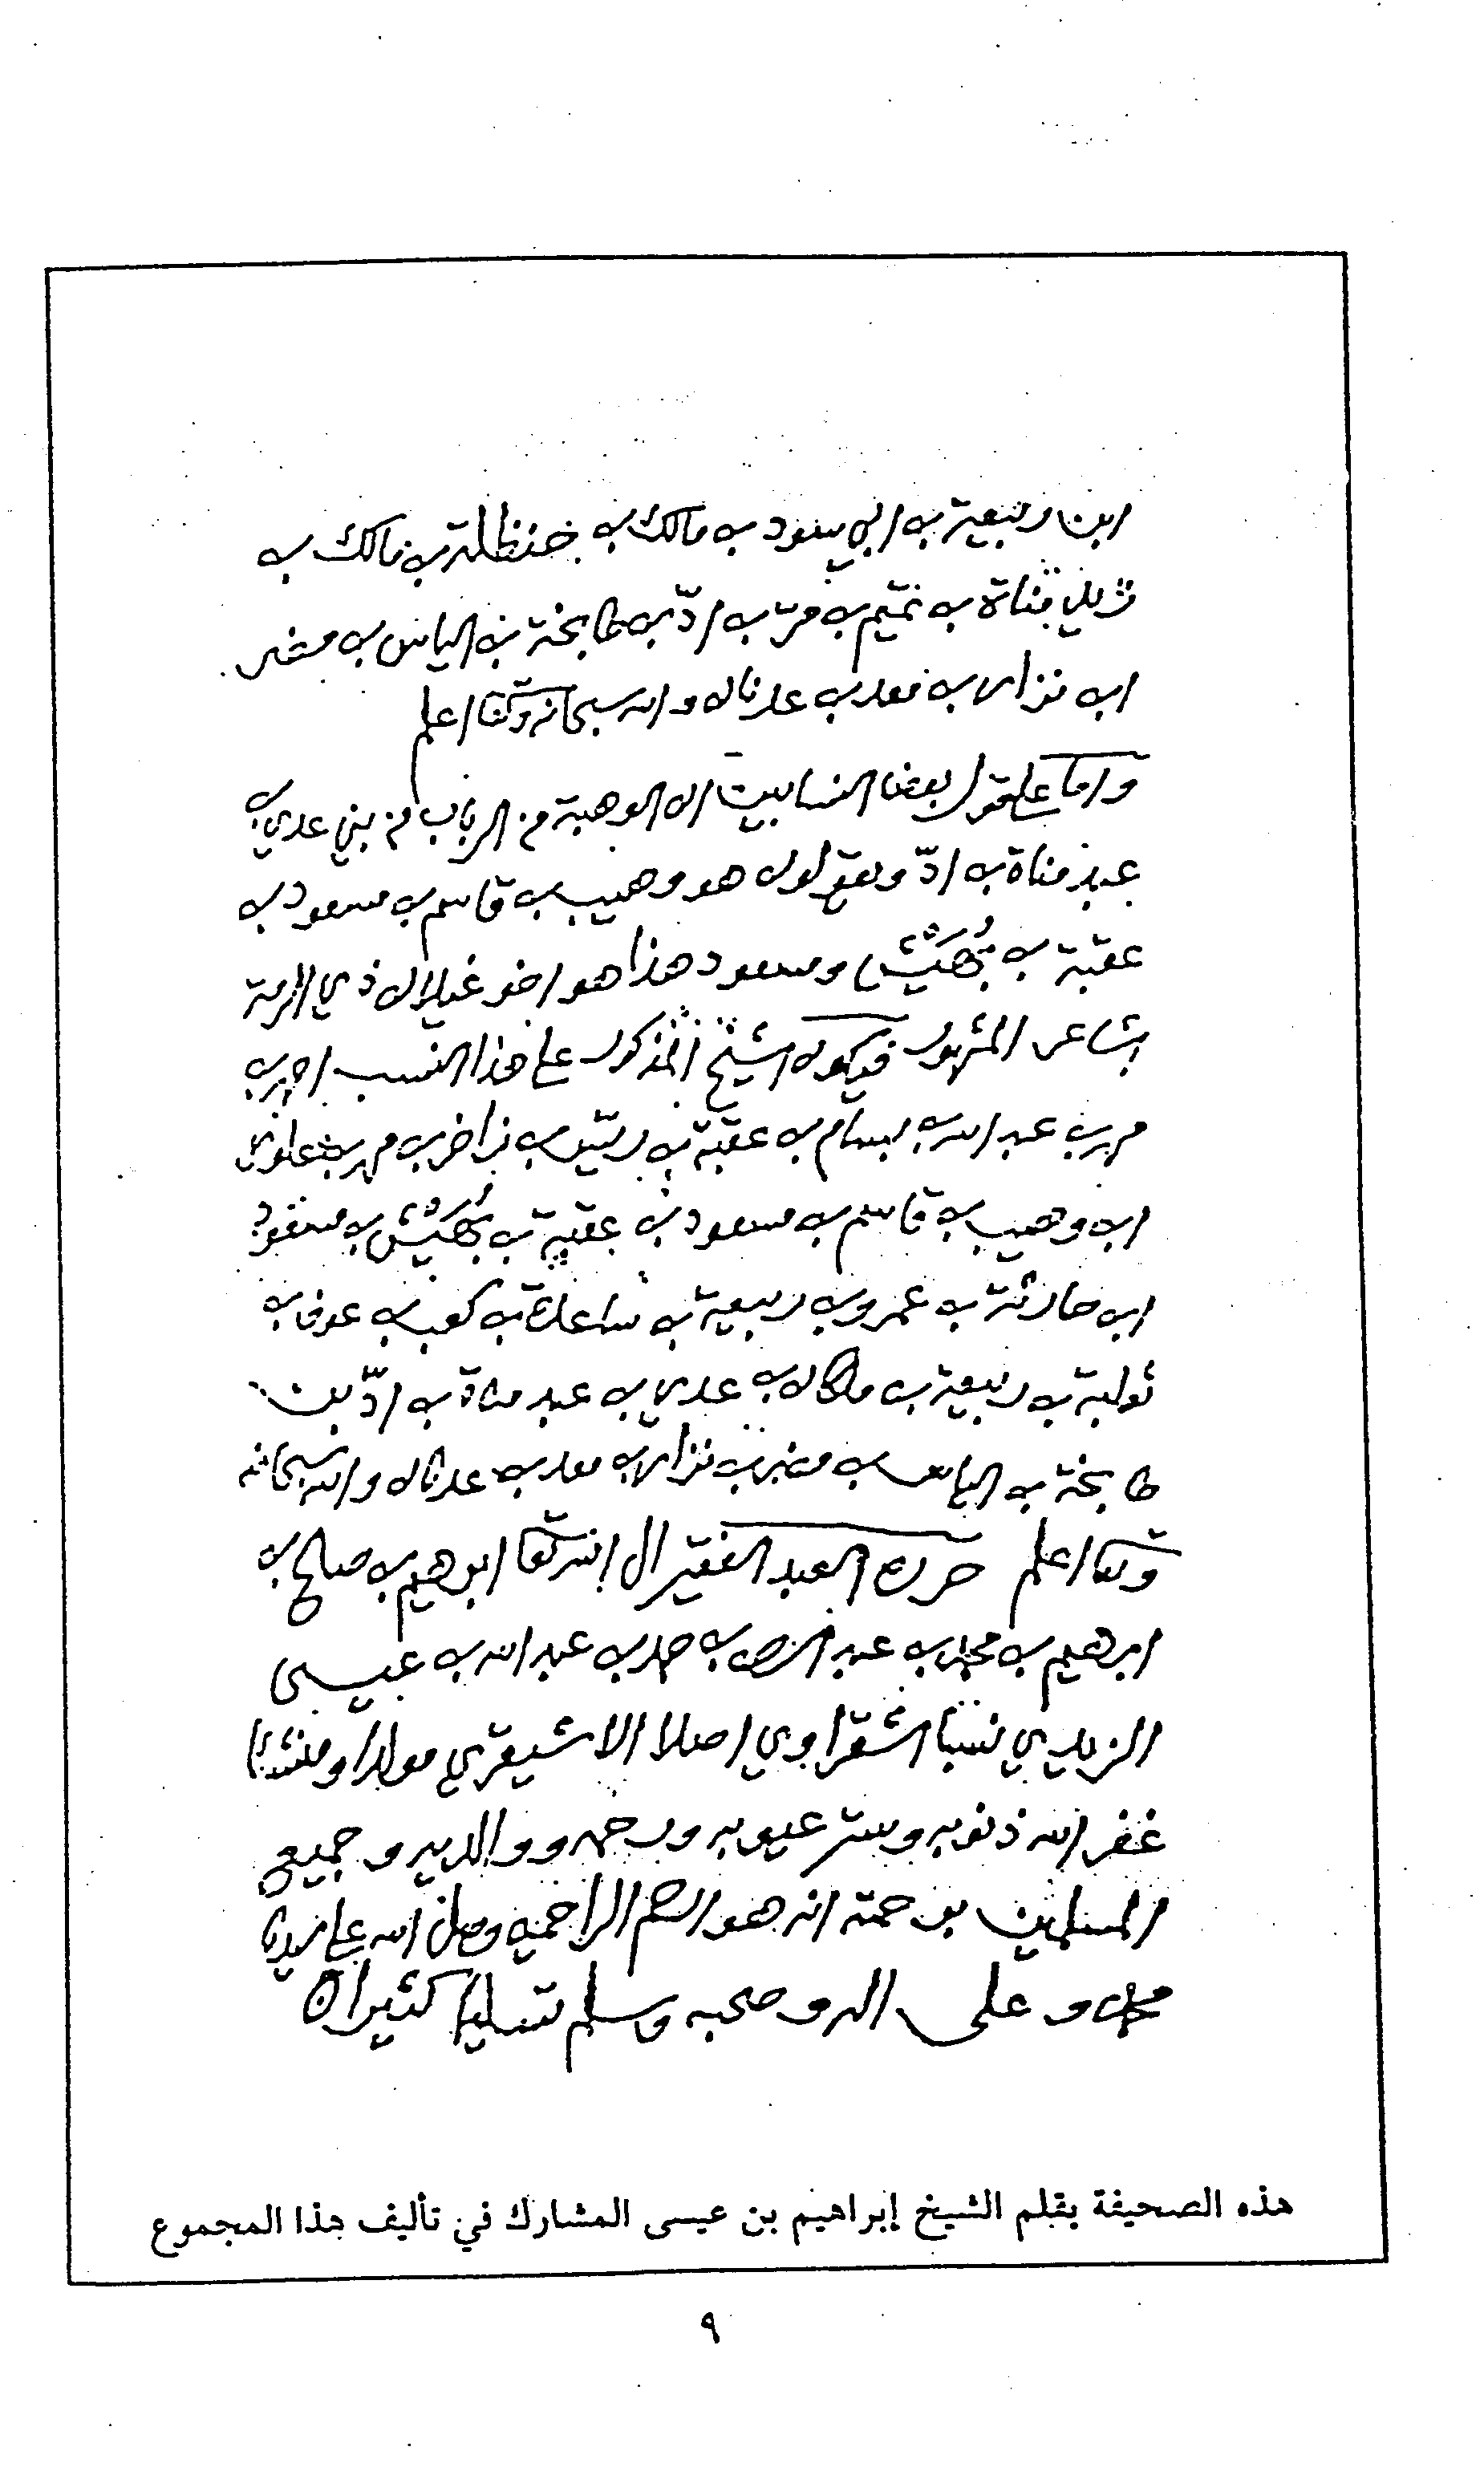 ابن ربيعة بن ابي سود بن مالك بن حنظلة بن مالك بن
زيد مناة بن تميم بن مر بن ادّ بن طابخة بن الياس بن مضر
ابن نزار بن معد بن عدنان والله سبحانه وتعالى اعلم
واما على قول بعض النسابين ان الوهبة من الرباب من بني عدي بن
عبد مناة بن ادّ ويقولون هو وهيب بن قاسم بن مسعود بن
عقبة بن بُهَيْش ومسعود هذا هو اخو غيلان ذي الرمة
الشاعر المشهور فيكون الشيخ المذكور على هذا النسب احمد بن
محمد بن عبد الله بن بسام بن عقبة بن ريس بن زاخر بن محمد بن علوي
ابن وهيب بن قاسم بن مسعود بن عقبة بن بُهَيْش بن مسعود
ابن حارثة بن عمرو بن ربيعة بن ساعدة بن كعب بن عوف بن
ثعلبة بن ربيعة بن ملكان بن عدي بن عبد مناة بن ادّ بن
طابخة بن الياس بن مضر بن نزار بن معد بن عدنان والله سبحانه
وتعالى اعلم حرره العبد الفقير الى الله تعالى ابرهيم بن صالح بن
ابرهيم بن محمد بن عبد الرحمن بن حمد بن عبد الله بن عيسى
الزيدي نسبا الشقراوي اصلا الاشيقري مولدا ومنشئا
غفر الله ذنوبه وستر عيوبه ورحمه ووالديه وجميع
المسلمين برحمته انه هو ارحم الراحمين وصلى الله على سيدنا
محمد وعلى اله وصحبه وسلم تسليما كثيرا
هذه الصحيفة بقلم الشيخ إبراهيم بن عيسى المشارك في تأليف هذا المجموع
٩